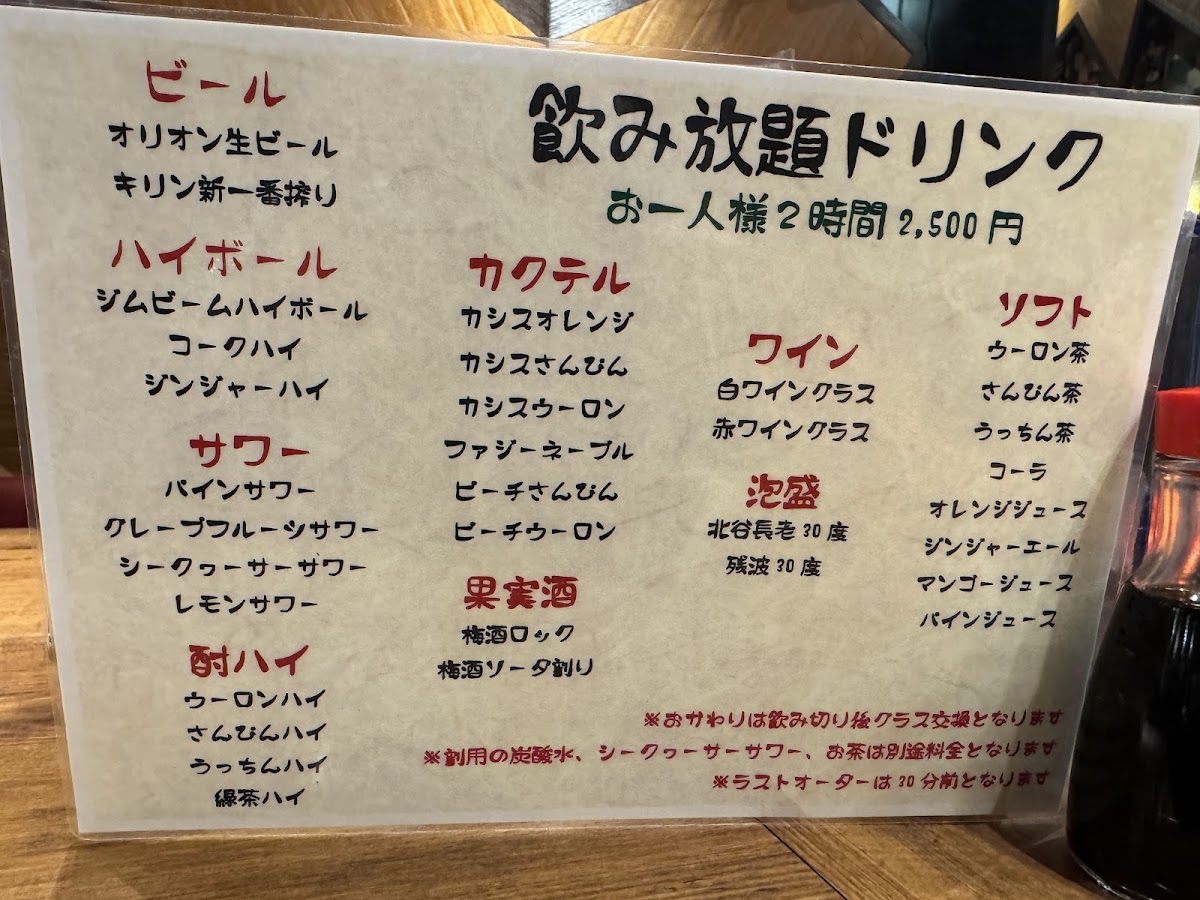 飲み放題ドリンク
お一人様2時間2,500円
ビール
オリオン生ビール
キリン新一番搾り
ハイボール
ジムビームハイボール
コークハイ
ジンジャーハイ
サワー
パインサワー
グレープフルーツサワー
シークヮーサーサワー
レモンサワー
酎ハイ
ウーロンハイ
さんぴんハイ
うっちんハイ
緑茶ハイ
カクテル
カシスオレンジ
カシスさんぴん
カシスウーロン
ファジーネーブル
ピーチさんぴん
ピーチウーロン
果実酒
梅酒ロック
梅酒ソーダ割り
ワイン
白ワイングラス
赤ワイングラス
泡盛
北谷長老30度
残波30度
ソフト
ウーロン茶
さんぴん茶
うっちん茶
コーラ
オレンジジュース
ジンジャーエール
マンゴージュース
パインジュース
※おかわりは飲み切り後グラス交換となります
※割用の炭酸水、シークヮーサーサワー、お茶は別途料金となります
※ラストオーダーは30分前となります